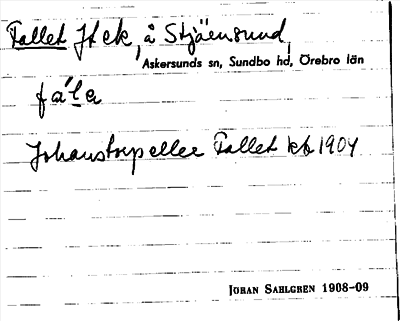 Fallet Jt ck, å Stjäensund,
Askersunds sn, Sundbo hd, Örebro län
fála
Johanstorp eller Fallet kb 1904
JOHAN SAHLGREN 1908-09